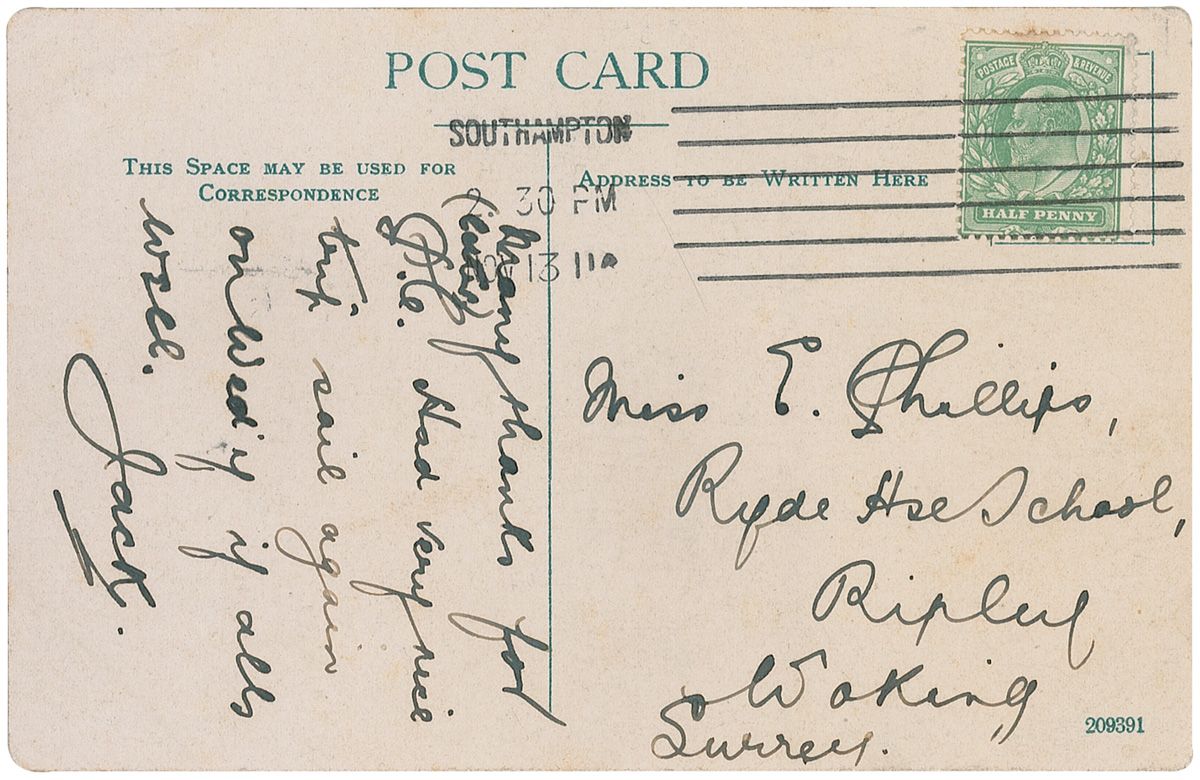 POST CARD
THIS SPACE MAY BE USED FOR
CORRESPONDENCE
ADDRESS TO BE WRITTEN HERE
SOUTHAMPTON
30 PM
NOV 13 11
POSTAGE & REVENUE
HALF PENNY
Many thanks for
P.C. Had very nice
trip sail again
on Wed'y if alls
well.
Jack.
Miss E. Phillips,
Ryde Hse School,
Ripley
Woking
Surrey.
209391